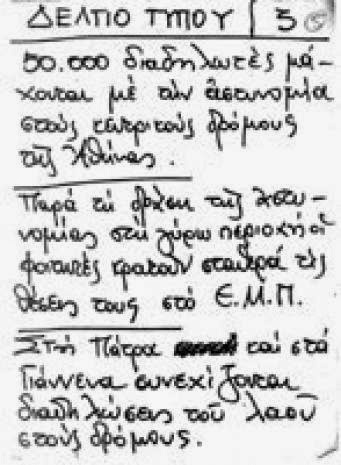 ΔΕΛΤΙΟ ΤΥΠΟΥ 5 5
50.000 διαδηλωτές μά-
χονται μέ τήν ἀστυνομία
στούς κεντρικούς δρόμους
τῆς Ἀθήνας.
Παρά τή δράση τῆς ἀστυ-
νομίας στή γύρω περιοχή οἱ
φοιτητές κρατοῦν σταθερά τίς
θέσεις τους στό Ε.Μ.Π.
Στή Πάτρα καί στά
Γιάννενα συνεχίζονται
διαδηλώσεις τοῦ λαοῦ
στούς δρόμους.